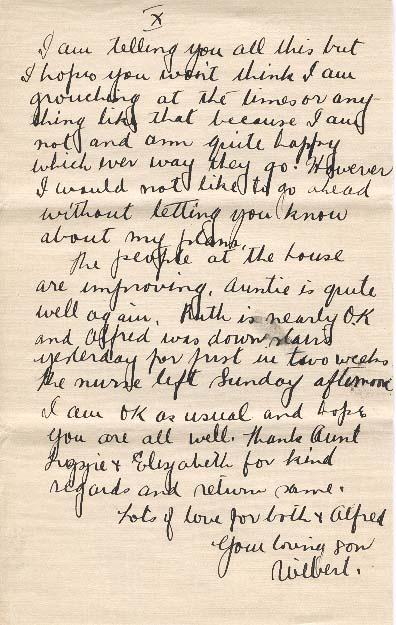 X
I am telling you all this but
I hope you won't think I am
grouching at the times or any-
thing like that because I am
not and am quite happy
which ever way they go. However
I would not like to go ahead
without letting you know
about my plans.
The people at the house
are improving. Auntie is quite
well again. Ruth is nearly OK
and Alfred was down stairs
yesterday for first in two weeks
The nurse left Sunday afternoon
I am OK as usual and hope
you are all well. Thank Aunt
Lizzie & Elizabeth for kind
regards and return same.
Lots of love for both & Alfred
Your loving son
Wilbert.